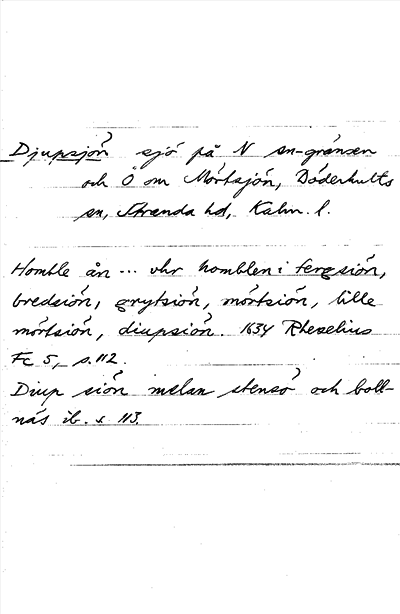 Djupsjön sjö på N sn-gränsen
och Ö om Mörtsjön, Döderhults
sn, Stranda hd, Kalm. l.
Homble ån ... vhr homblen i fergsiön,
bredsiön, grytsiön, mörtsiön, lille
mörtsiön, diupsiön. 1634 Rheselius
Fc 5, s. 112.
Diup siön melan stensö och boll-
näs ib. s 113.